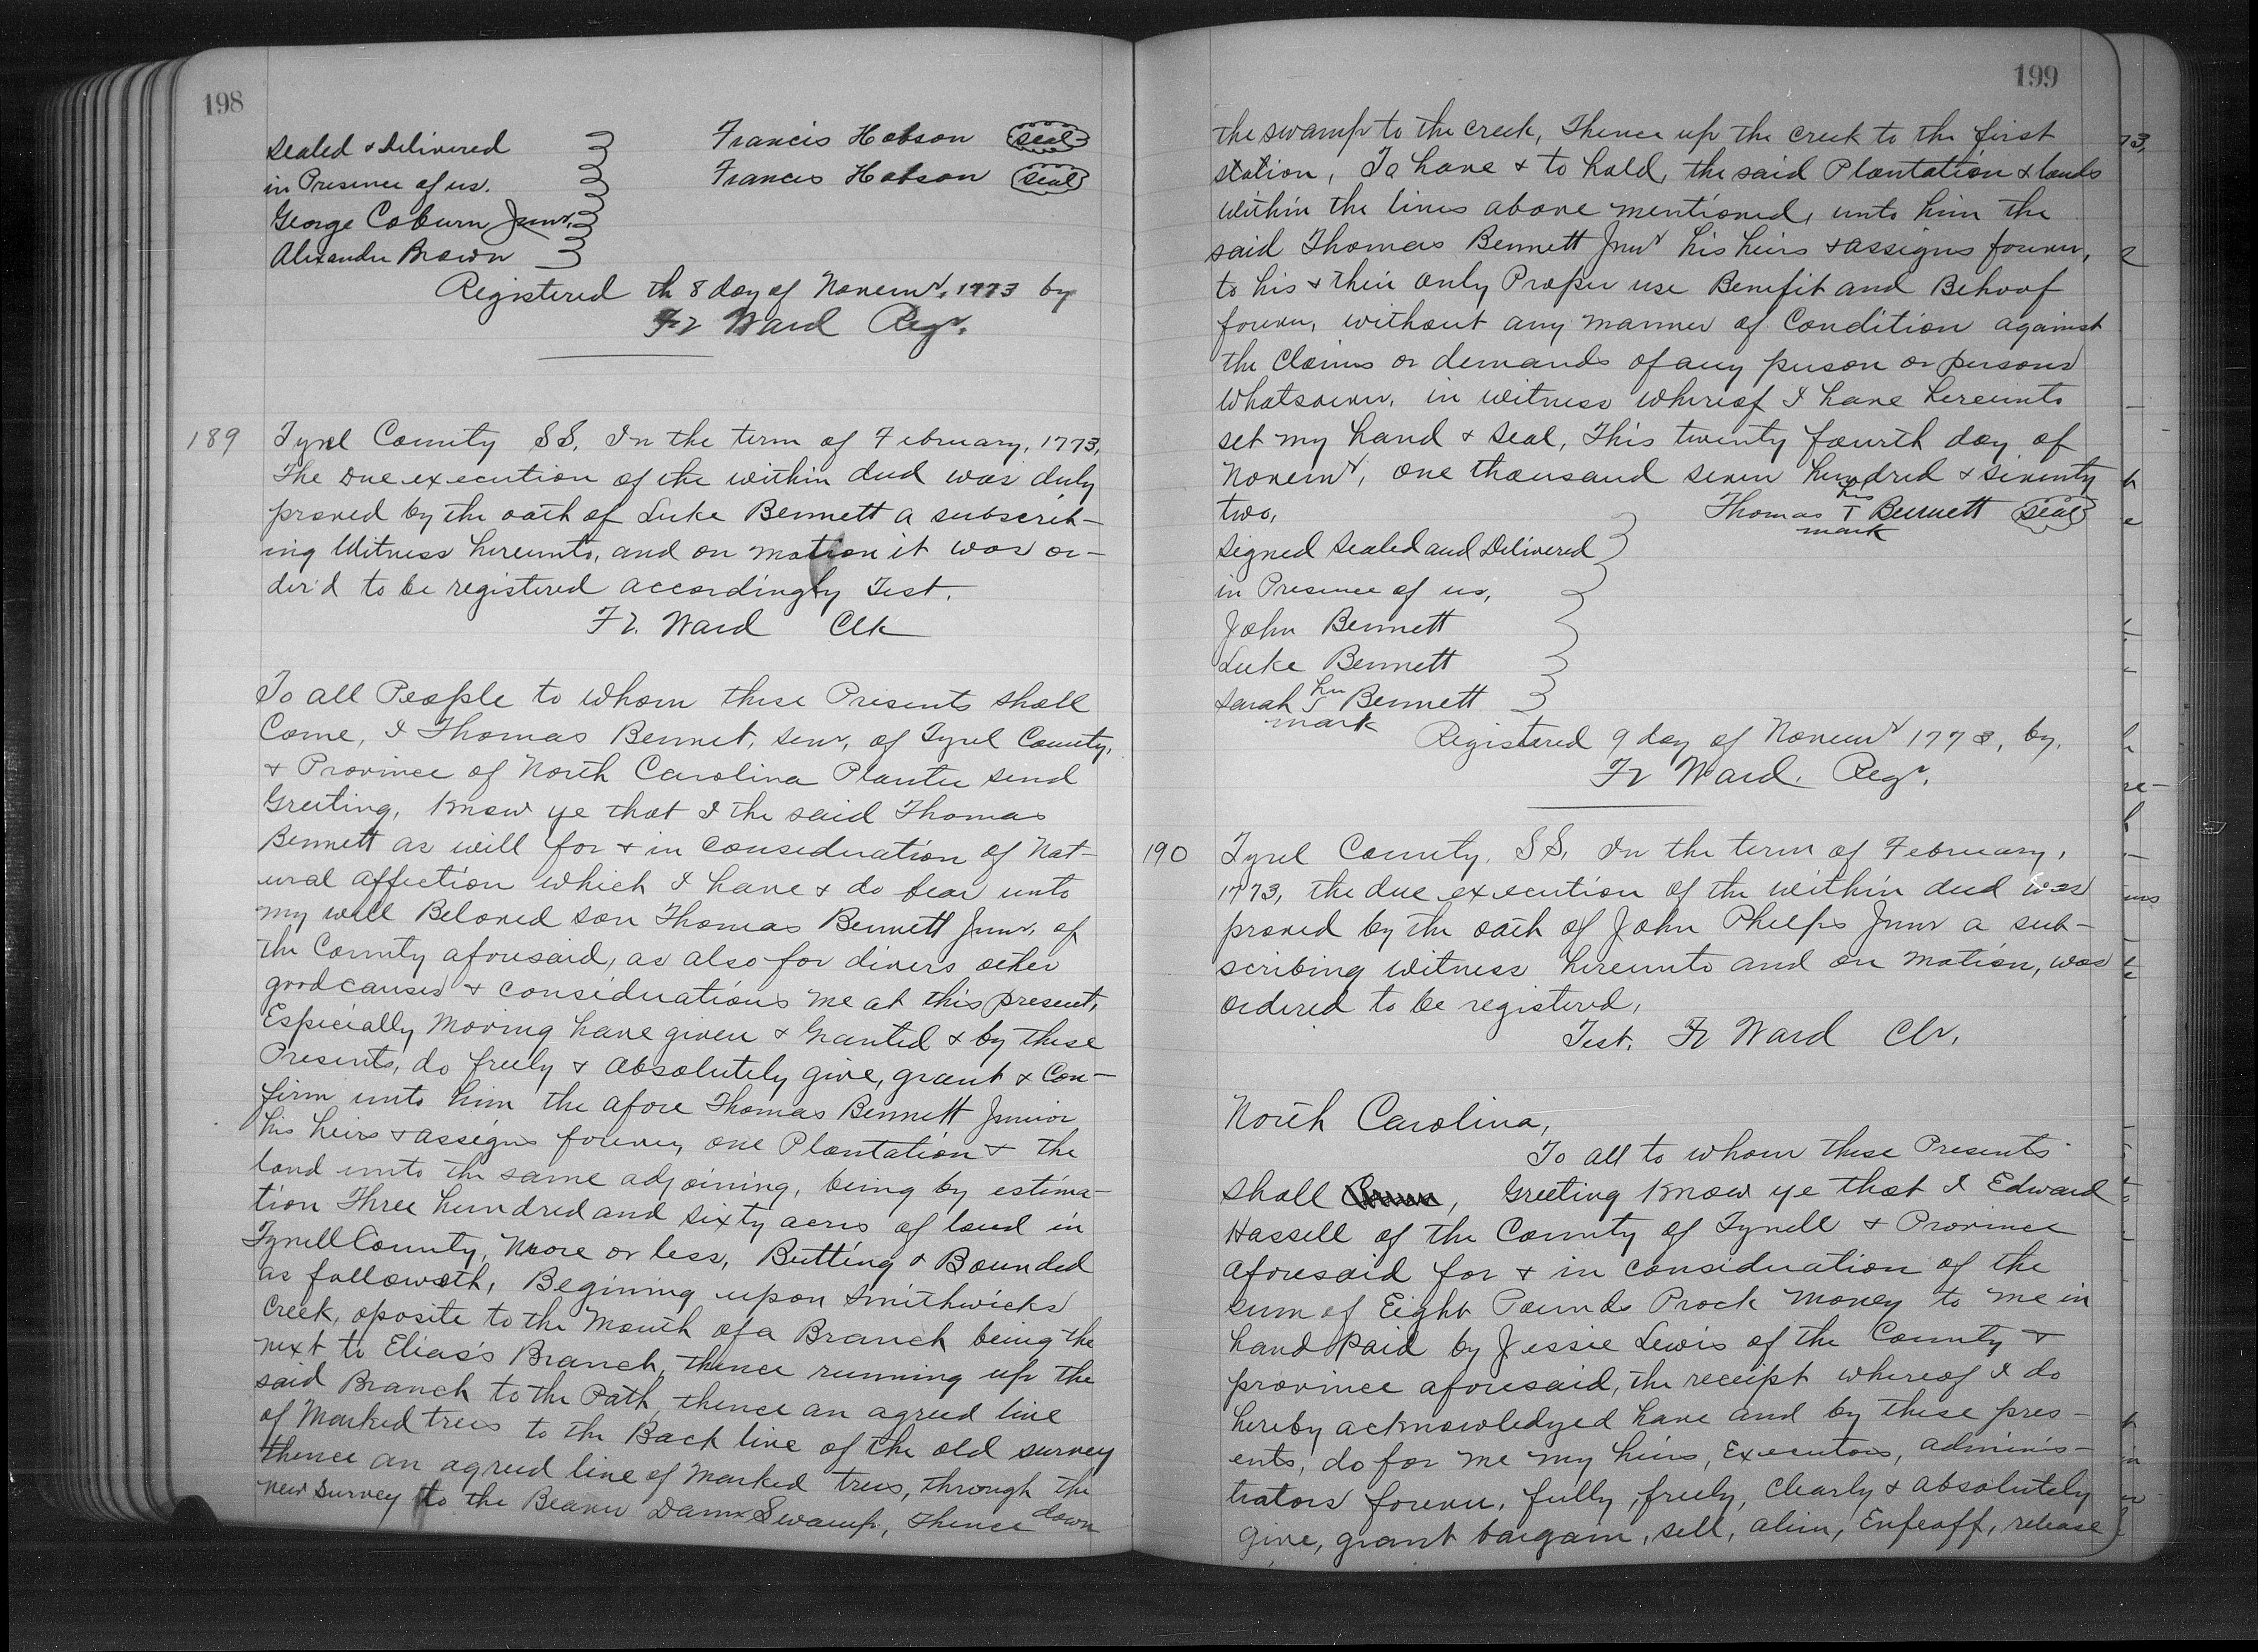 198
Sealed & Delivered
in Presence of us.
George Coburn Junr.
Alexander Brown
Francis Hobson Seal
Francis Hobson Seal
Registered th 8 day of Novemr. 1773 by
Fr Ward Regr.
189
Tyrel County SS. In the term of February, 1773,
The Due execution of the within deed was duly
proved by the oath of Luke Bennett a subscrib-
ing Witness hereunto, and on motion it was or-
der'd to be registered accordingly Test.
Fr. Ward Clk
To all People to whom these Presents shall
Come, I Thomas Bennet, senr, of Tyrel County,
& Province of North Carolina Planter send
Greeting, Know ye that I the said Thomas
Bennett as well for & in consideration of Nat-
ural affection which I have & do bear unto
my well Beloved son Thomas Bennett Junr. of
the County aforesaid, as also for divers other
good causes & considerations me at this present,
Especially moving have given & Granted & by these
Presents, do freely & absolutely give, grant & Con-
firm unto him the afore Thomas Bennett Junior
his heirs & assigns forever, one Plantation & the
land unto the same adjoining, being by estima-
tion Three hundred and sixty acres of land in
Tyrrell County, More or less, Butting & Bounded
as followeth, Begining upon Smithwicks
Creek, oposite to the Mouth of a Branch being the
next to Elias's Branch, thence running up the
said Branch to the Path, thence an agreed line
of Marked trees to the Back line of the old survey
thence an agreed line of Marked trees, through the
new survey to the Beaver Damn Swamp, thence down
199
the swamp to the creek, Thence up the creek to the first
station, To have & to hold, the said Plantation & lands
within the lines above mentioned, unto him the
said Thomas Bennett Junr his heirs & assigns forever,
to his & their only Proper use Benefit and Behoof
forever, without any manner of Condition against
the Claims or demands of any person or persons
Whatsoever, in witness whereof I have hereunto
set my hand & seal, This twenty fourth day of
Novemr, one thousand seven hundred & seventy
two,
Thomas his T mark Bennett Seal
Signed Sealed and Delivered
in Presence of us,
John Bennett
Luke Bennett
Sarah her S mark Bennett
Registered 9 day of Novemr 1773, by,
Fr Ward. Regr.
190
Tyrel County, SS, In the term of February,
1773, the due execution of the within deed was
proved by the oath of John Phelps Junr a sub-
scribing witness hereunto and on motion, was
ordered to be registered,
Test. Fr Ward Clr.
North Carolina,
To all to whom these Presents
shall , Greeting Know ye that I Edward
Hassell of the County of Tyrrell & Province
aforesaid for & in consideration of the
sum of Eight Pounds Prock Money to me in
hand paid by Jessie Lewis of the County &
province aforesaid, the receipt whereof I do
hereby acknowledged have and by these pres-
ents, do for me my heirs, Executors, adminis-
trators forever, fully, freely, Clearly & absolutely
give, grant bargain, sell, alien, Enfeoff, release